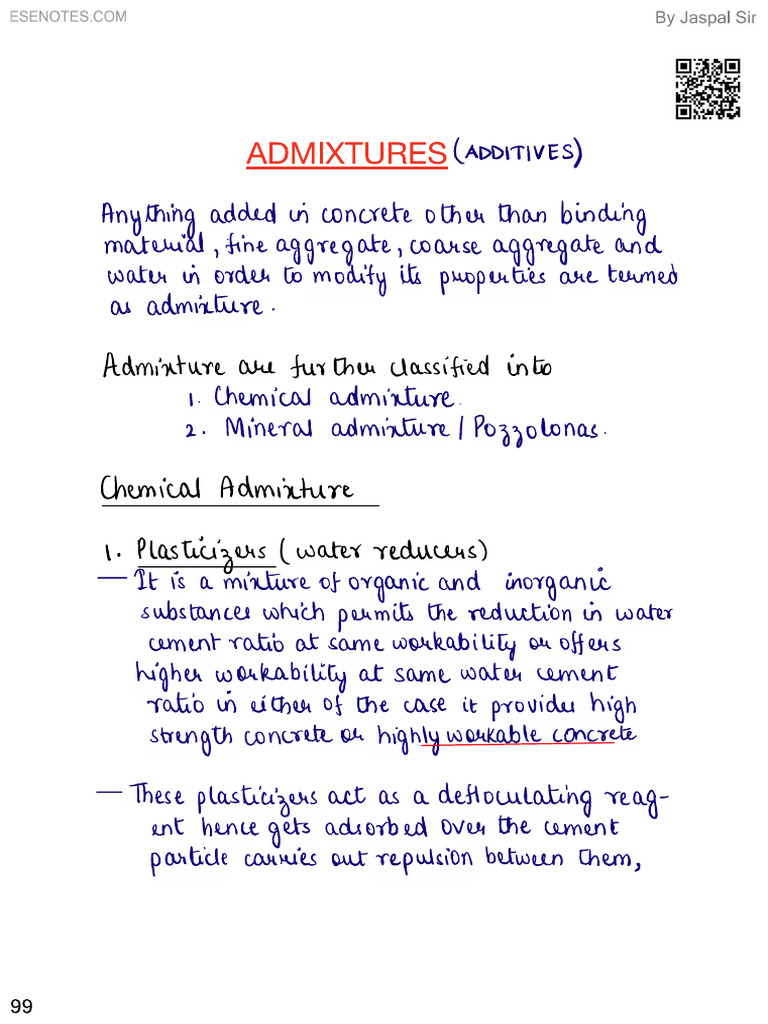 ESENOTES.COM
By Jaspal Sir
ADMIXTURES (ADDITIVES)
Anything added in concrete other than binding
material, fine aggregate, coarse aggregate and
water in order to modify its properties are termed
as admixture.
Admixture are further classified into
1. Chemical admixture.
2. Mineral admixture / Pozzolonas.
Chemical Admixture
1. Plasticizers (water reducers)
— It is a mixture of organic and inorganic
substances which permits the reduction in water
cement ratio at same workability or offers
higher workability at same water cement
ratio in either of the case it provides high
strength concrete or highly workable concrete
— These plasticizers act as a defloculating reag-
ent hence gets adsorbed over the cement
particle carries out repulsion between them,
99